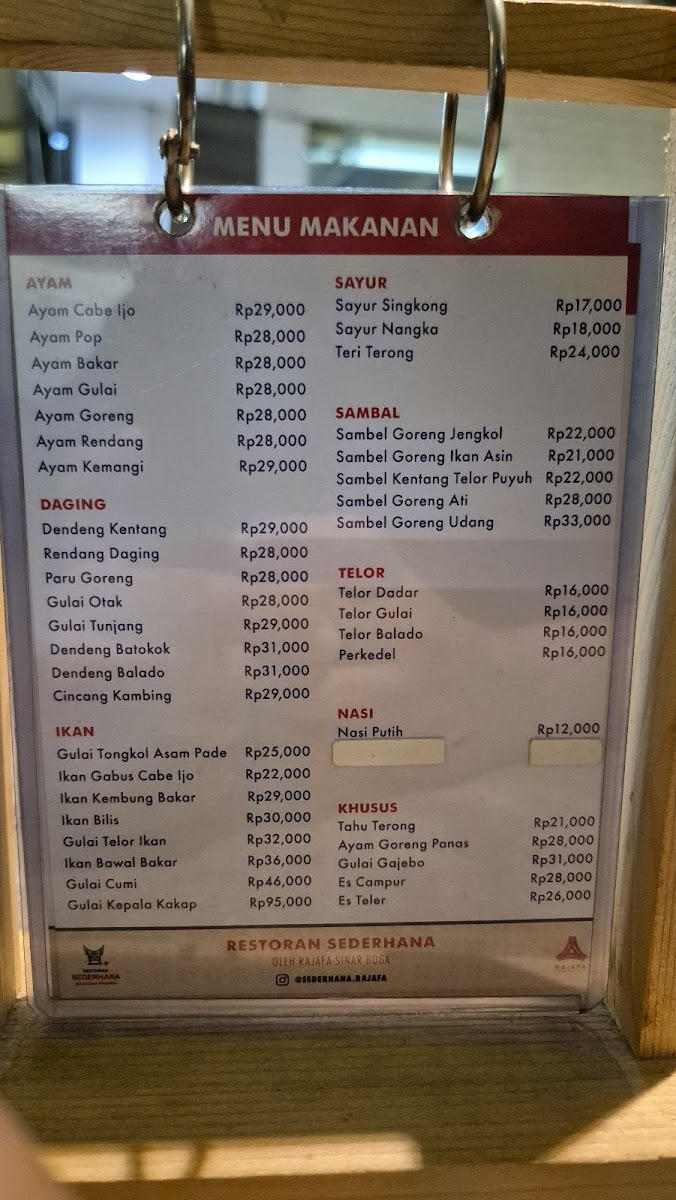 MENU MAKANAN
AYAM
Ayam Cabe Ijo Rp29,000
Ayam Pop Rp28,000
Ayam Bakar Rp28,000
Ayam Gulai Rp28,000
Ayam Goreng Rp28,000
Ayam Rendang Rp28,000
Ayam Kemangi Rp29,000
DAGING
Dendeng Kentang Rp29,000
Rendang Daging Rp28,000
Paru Goreng Rp28,000
Gulai Otak Rp28,000
Gulai Tunjang Rp29,000
Dendeng Batokok Rp31,000
Dendeng Balado Rp31,000
Cincang Kambing Rp29,000
IKAN
Gulai Tongkol Asam Pade Rp25,000
Ikan Gabus Cabe Ijo Rp22,000
Ikan Kembung Bakar Rp29,000
Ikan Bilis Rp30,000
Gulai Telor Ikan Rp32,000
Ikan Bawal Bakar Rp36,000
Gulai Cumi Rp46,000
Gulai Kepala Kakap Rp95,000
SAYUR
Sayur Singkong Rp17,000
Sayur Nangka Rp18,000
Teri Terong Rp24,000
SAMBAL
Sambel Goreng Jengkol Rp22,000
Sambel Goreng Ikan Asin Rp21,000
Sambel Kentang Telor Puyuh Rp22,000
Sambel Goreng Ati Rp28,000
Sambel Goreng Udang Rp33,000
TELOR
Telor Dadar Rp16,000
Telor Gulai Rp16,000
Telor Balado Rp16,000
Perkedel Rp16,000
NASI
Nasi Putih Rp12,000
KHUSUS
Tahu Terong Rp21,000
Ayam Goreng Panas Rp28,000
Gulai Gajebo Rp31,000
Es Campur Rp28,000
Es Teler Rp26,000
RESTORAN
SEDERHANA
MASAKAN PADANG
RESTORAN SEDERHANA
OLEH RAJAFA SINAR BOGA
@SEDERHANA.RAJAFA
RAJAFA